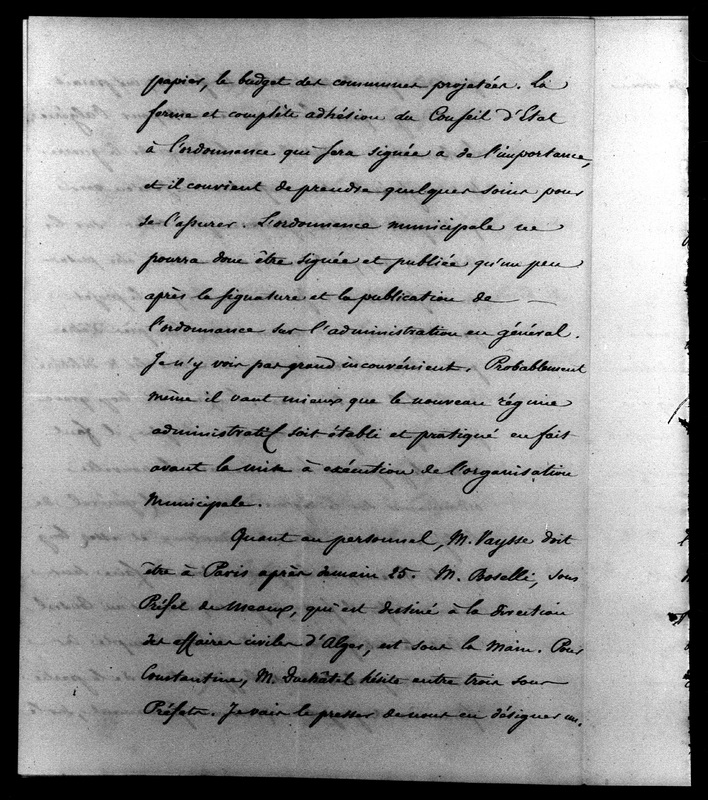 papier, le budget des communes projetées. La
ferme et complète adhésion du Conseil d'Etat
à l'ordonnance qui sera signée a de l'importance,
et il convient de prendre quelques soins pour
se l'assurer. L'ordonnance municipale ne
pourra donc être signée et publiée qu'un peu
après la signature et la publication de —
l'ordonnance sur l'administration en général.
Je n'y vois pas grand inconvénient. Probablement
même il vaut mieux que le nouveau régime
administratif soit établi et pratiqué en fait
avant la mise à exécution de l'organisation
municipale.
Quant au personnel, M. Vaysse doit
être à Paris après demain 25. M. Boselli, sous
Préfet de Meaux, qui est destiné à la direction
des affaires civiles d'Alger, est sous la main. Pour
Constantine, M. Duchâtel hésite entre trois sous
Préfets. Je vais le presser de nous en désigner un.